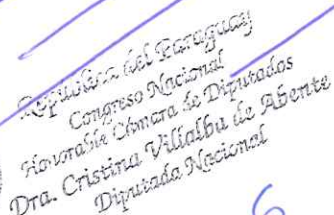 República del Paraguay
Congreso Nacional
Honorable Cámara de Diputados
Dra. Cristina Villalba de Abente
Diputada Nacional